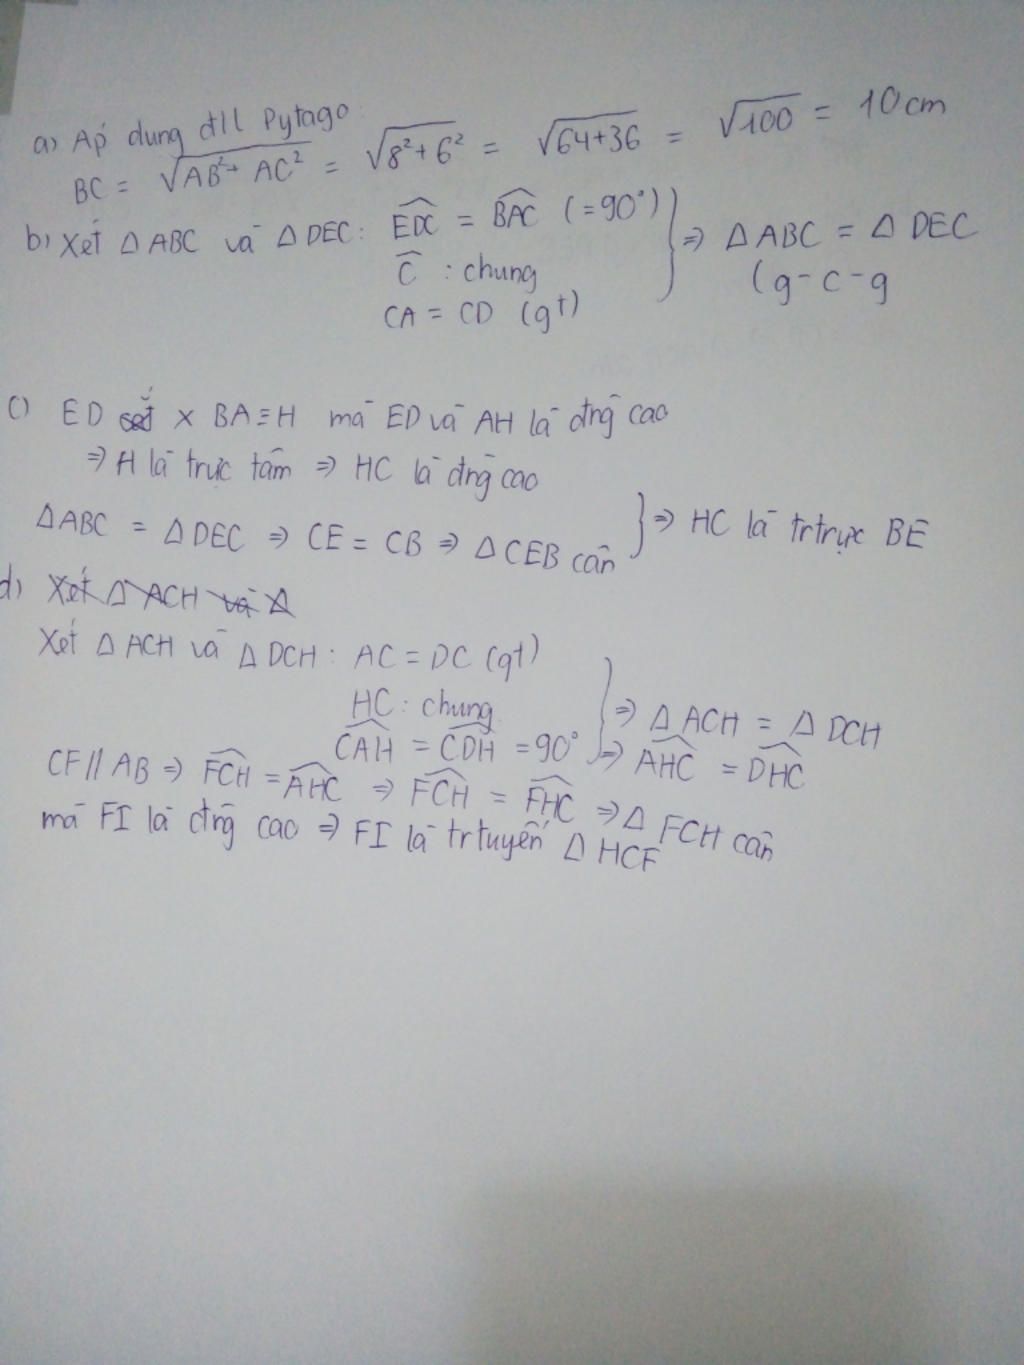 a) Áp dụng đ/l Pytago:
BC = √AB²+ AC² = √8²+6² = √64+36 = √100 = 10cm
b) Xét Δ ABC và Δ DEC: EDC = BAC (=90°)
C : chung
CA = CD (gt)
⇒ Δ ABC = Δ DEC
(g-c-g
c) ED x BA ≡ H mà ED và AH là đng cao
⇒ H là trực tâm ⇒ HC là đng cao
Δ ABC = Δ DEC ⇒ CE = CB ⇒ Δ CEB cân
} ⇒ HC là trtrực BE
d) Xét Δ ACH và Δ
Xét Δ ACH và Δ DCH: AC = DC (gt)
HC: chung
CAH = CDH = 90°
⇒ Δ ACH = Δ DCH
⇒ AHC = DHC
CF // AB ⇒ FCH = AHC ⇒ FCH = FHC ⇒ Δ FCH cân
mà FI là đng cao ⇒ FI là trtuyến Δ HCF